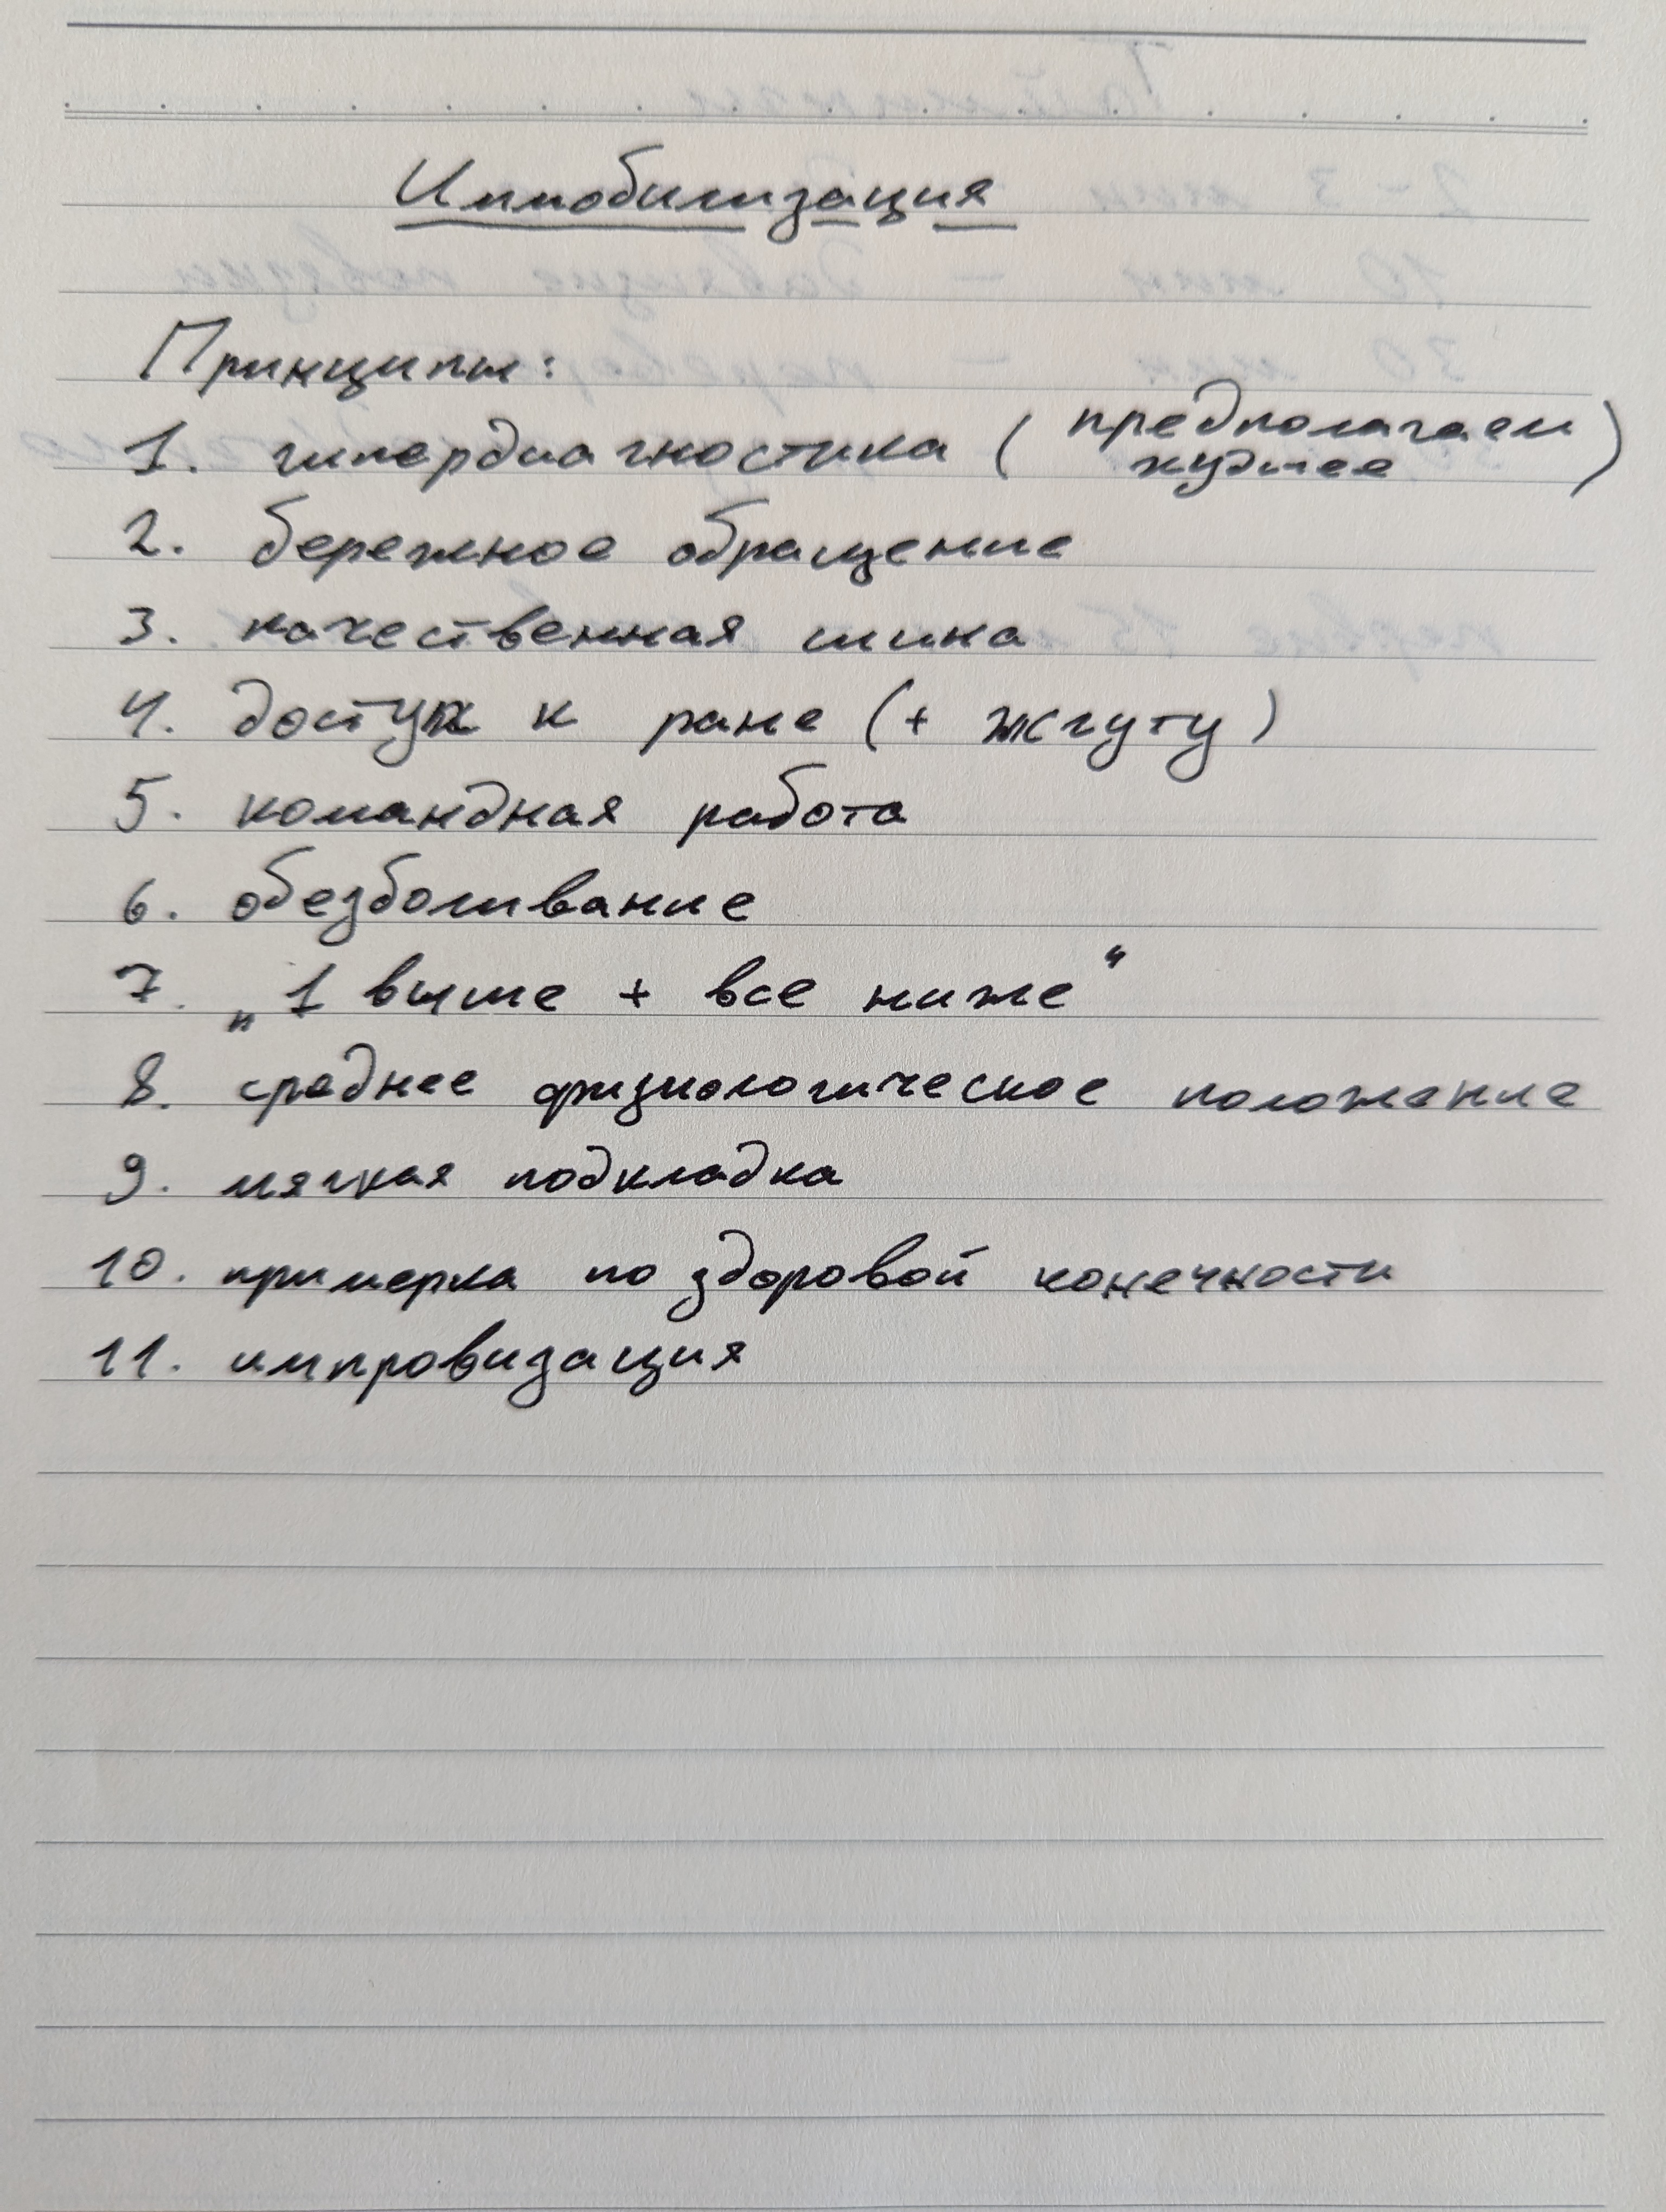 Иммобилизация
Принципы:
1. гипердиагностика (предполагаем худшее)
2. бережное обращение
3. качественная шина
4. доступ к ране (+ жгуту)
5. командная работа
6. обезболивание
7. „1 выше + все ниже“
8. среднее физиологическое положение
9. мягкая подкладка
10. примерка по здоровой конечности
11. импровизация